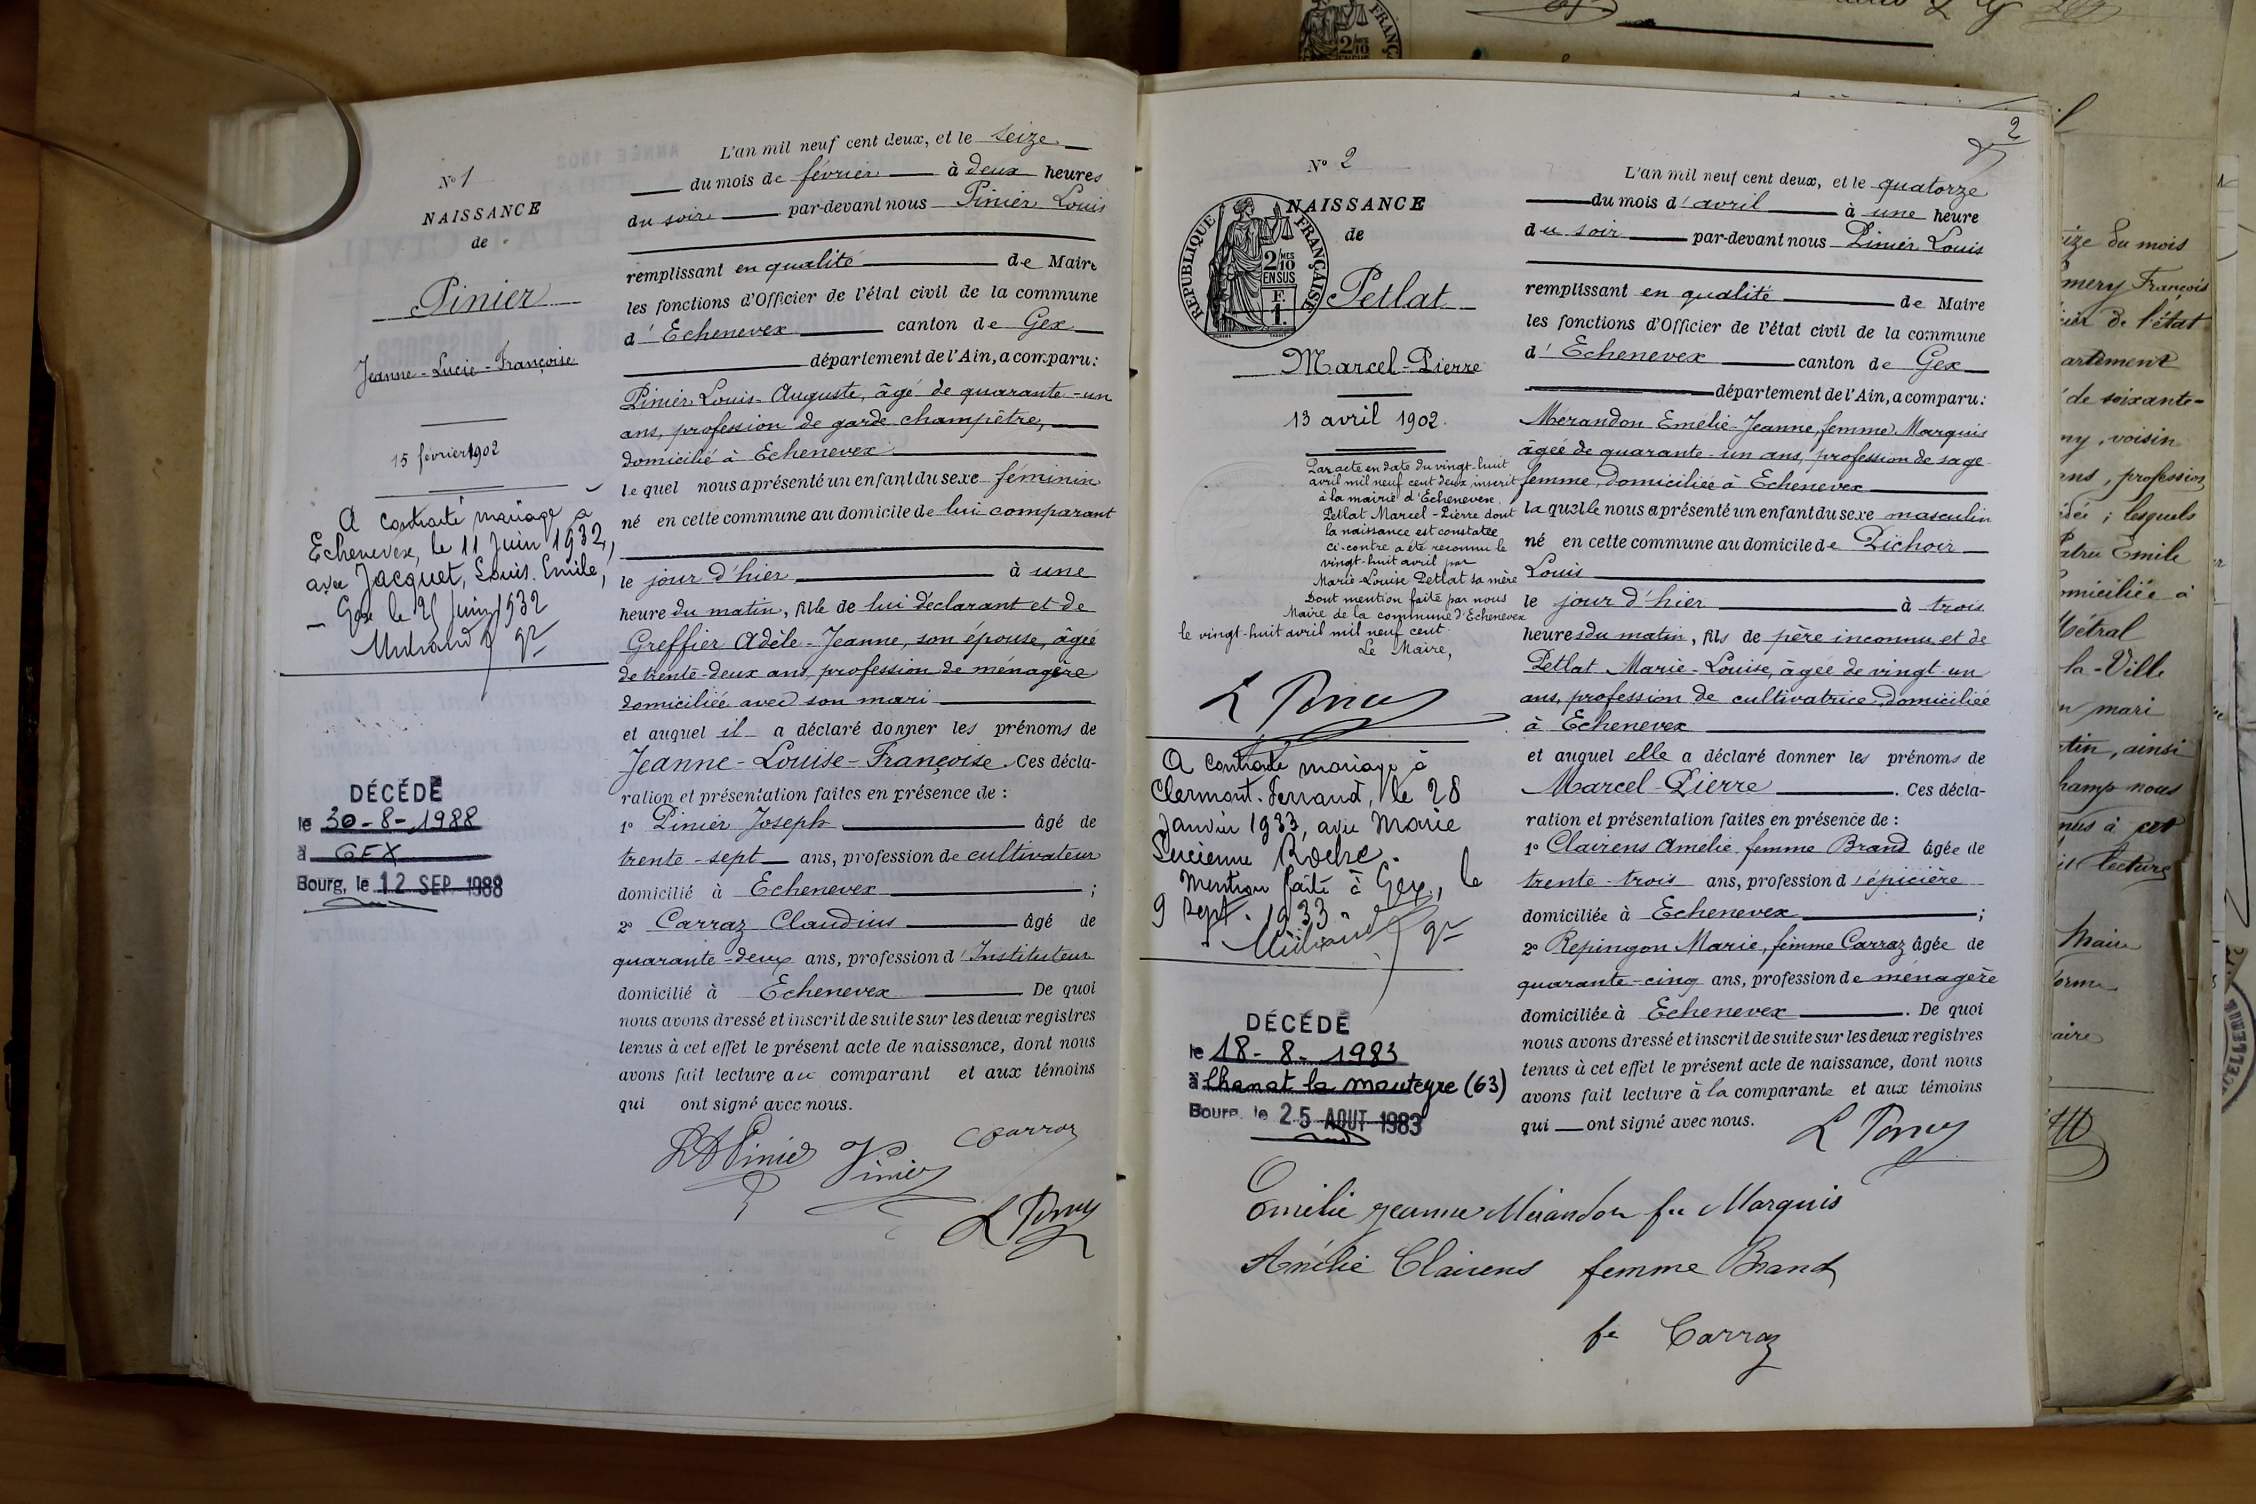 N° 1
NAISSANCE
de
Pinier
Jeanne-Lucie-Françoise
15 février 1902
A contracté mariage à
Echenevex, le 11 Juin 1932,
avec Jacquet, Louis Emile,
Gex le 25 Juin 1932
DÉCÉDÉ
le 30-8-1988
à GEX
Bourg, le 12 SEP. 1988
L'an mil neuf cent deux, et le seize
du mois de février à deux heures
du soir par-devant nous Pinier Louis
remplissant en qualité de Maire
les fonctions d'Officier de l'état civil de la commune
d'Echenevex canton de Gex
département de l'Ain, a comparu:
Pinier Louis-Auguste, âgé de quarante-un
ans, profession de garde champêtre,
domicilié à Echenevex
lequel nous a présenté un enfant du sexe féminin
né en cette commune au domicile de lui comparant
le jour d'hier à une
heure du matin, fille de lui déclarant et de
Greffier Adèle-Jeanne, son épouse, âgée
de trente-deux ans, profession de ménagère
domiciliée avec son mari
et auquel il a déclaré donner les prénoms de
Jeanne-Louise-Françoise. Ces décla-
ration et présentation faites en présence de :
1° Pinier Joseph âgé de
trente-sept ans, profession de cultivateur
domicilié à Echenevex ;
2° Carraz Claudius âgé de
quarante-deux ans, profession d'Instituteur
domicilié à Echenevex De quoi
nous avons dressé et inscrit de suite sur les deux registres
tenus à cet effet le présent acte de naissance, dont nous
avons fait lecture au comparant et aux témoins
qui ont signé avec nous.
LA Pinier Pinier Carraz
N° 2
NAISSANCE
de
REPUBLIQUE FRANÇAISE
2/10 MES
EN SUS
F.
1.
Petlat
Marcel-Pierre
13 avril 1902.
Par acte en date du vingt-huit
avril mil neuf cent deux, inscrit
à la mairie d'Echenevex.
Petlat Marcel-Pierre dont
la naissance est constatée
ci-contre a été reconnu le
vingt-huit avril par
Marie-Louise Petlat sa mère
Dont mention faite par nous
Maire de la commune d'Echenevex
le vingt-huit avril mil neuf cent.
Le Maire,
A contracté mariage à
Clermont-Ferrand, le 28
Janvier 1933, avec Marie
Lucienne Roche.
Mention faite à Gex, le
9 Sept. 1933
DÉCÉDÉ
le 18-8-1983
à Chanat la mouteyre (63)
Bourg, le 25 AOUT 1983
2
L'an mil neuf cent deux, et le quatorze
du mois d'avril à une heure
du soir par-devant nous Pinier Louis
remplissant en qualité de Maire
les fonctions d'Officier de l'état civil de la commune
d'Echenevex canton de Gex
département de l'Ain, a comparu:
Merandon Emélie-Jeanne, femme Marquis
âgée de quarante-un ans, profession de sage
femme, domiciliée à Echenevex
laquelle nous a présenté un enfant du sexe masculin
né en cette commune au domicile de Pichoir
Louis
le jour d'hier à trois
heures du matin, fils de père inconnu et de
Petlat Marie-Louise, âgée de vingt-un
ans, profession de cultivatrice, domiciliée
à Echenevex
et auquel elle a déclaré donner les prénoms de
Marcel-Pierre. Ces décla-
ration et présentation faites en présence de :
1° Clairens Amélie femme Brand âgée de
trente-trois ans, profession d'épicière
domiciliée à Echenevex ;
2° Repingon Marie, femme Carraz âgée de
quarante-cinq ans, profession de ménagère
domiciliée à Echenevex. De quoi
nous avons dressé et inscrit de suite sur les deux registres
tenus à cet effet le présent acte de naissance, dont nous
avons fait lecture à la comparante et aux témoins
qui ont signé avec nous.
Emélie Jeanne Mérandon fe Marquis
Amélie Clairens femme Brand
fe Carraz